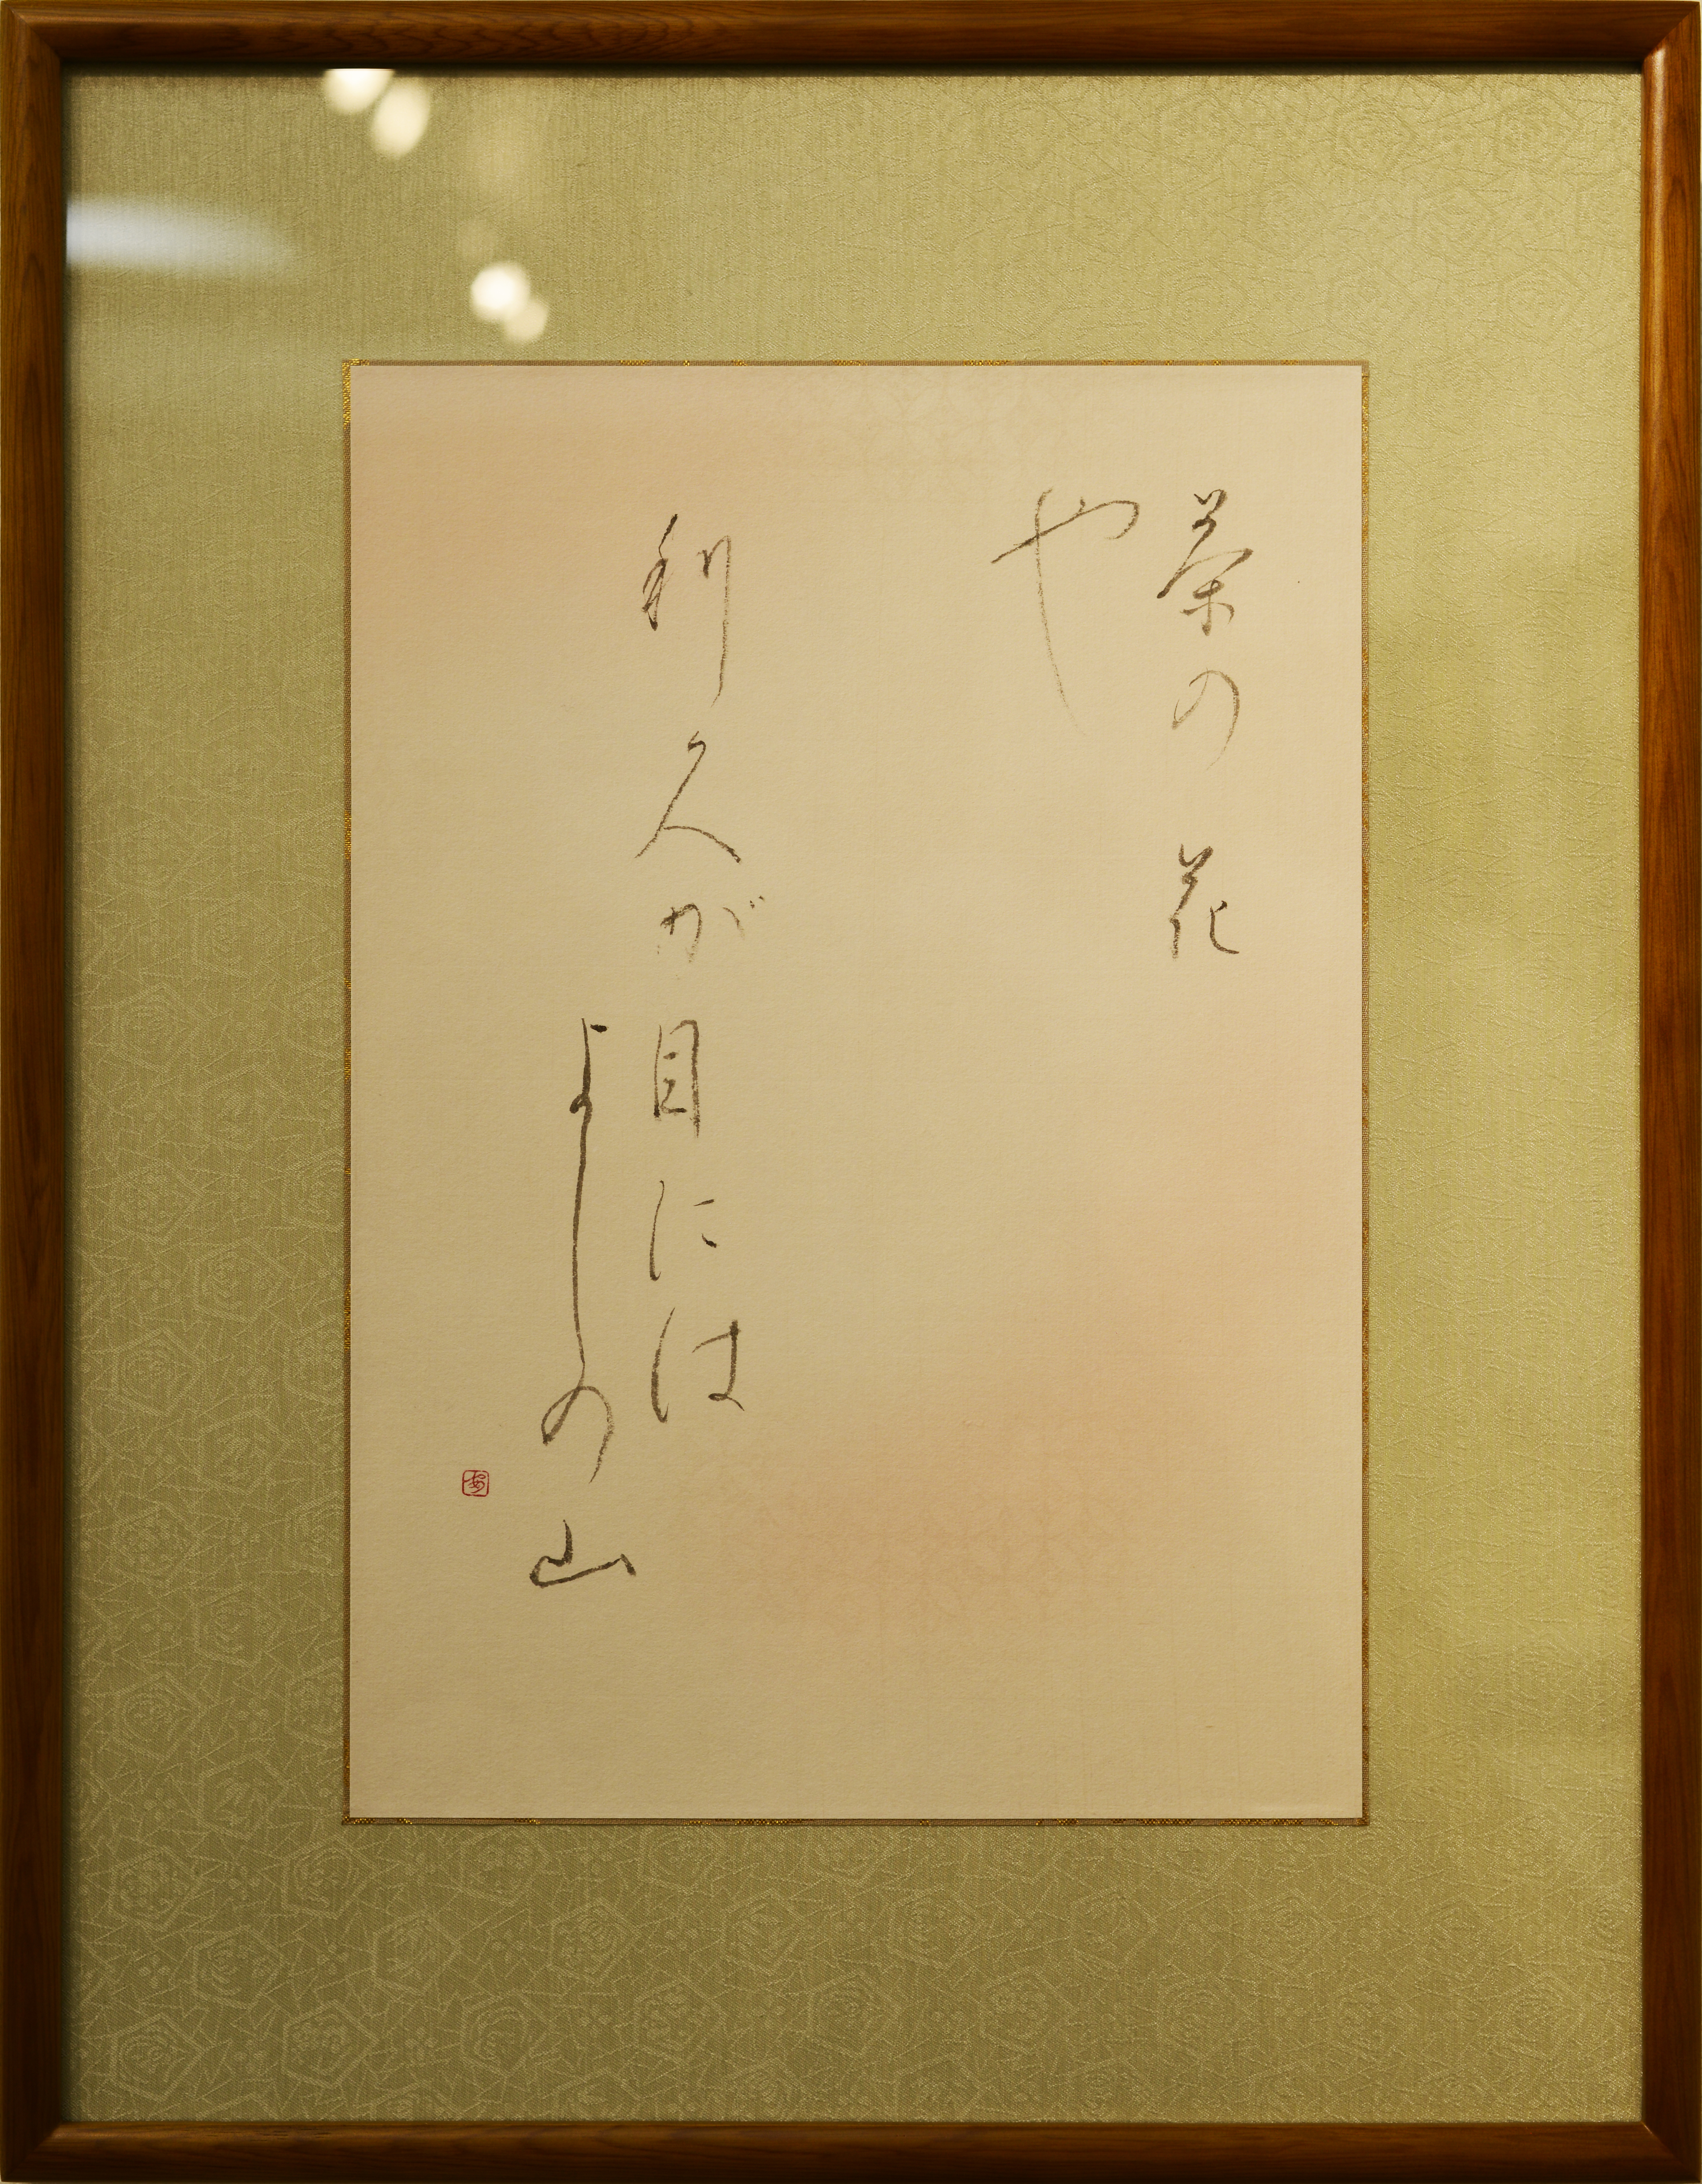 茶の花
や
利久が目には
よしの山